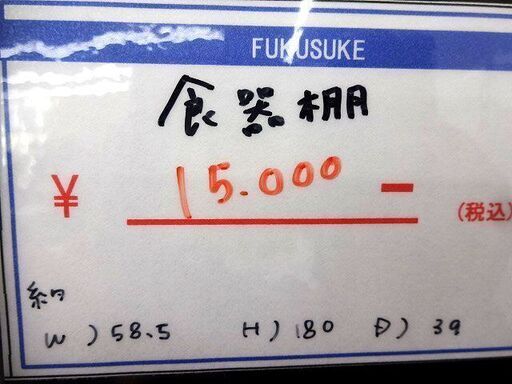 FUKUSUKE
食器棚
¥ 15.000 -
(税込)
W ) 58.5 H ) 180 D ) 39